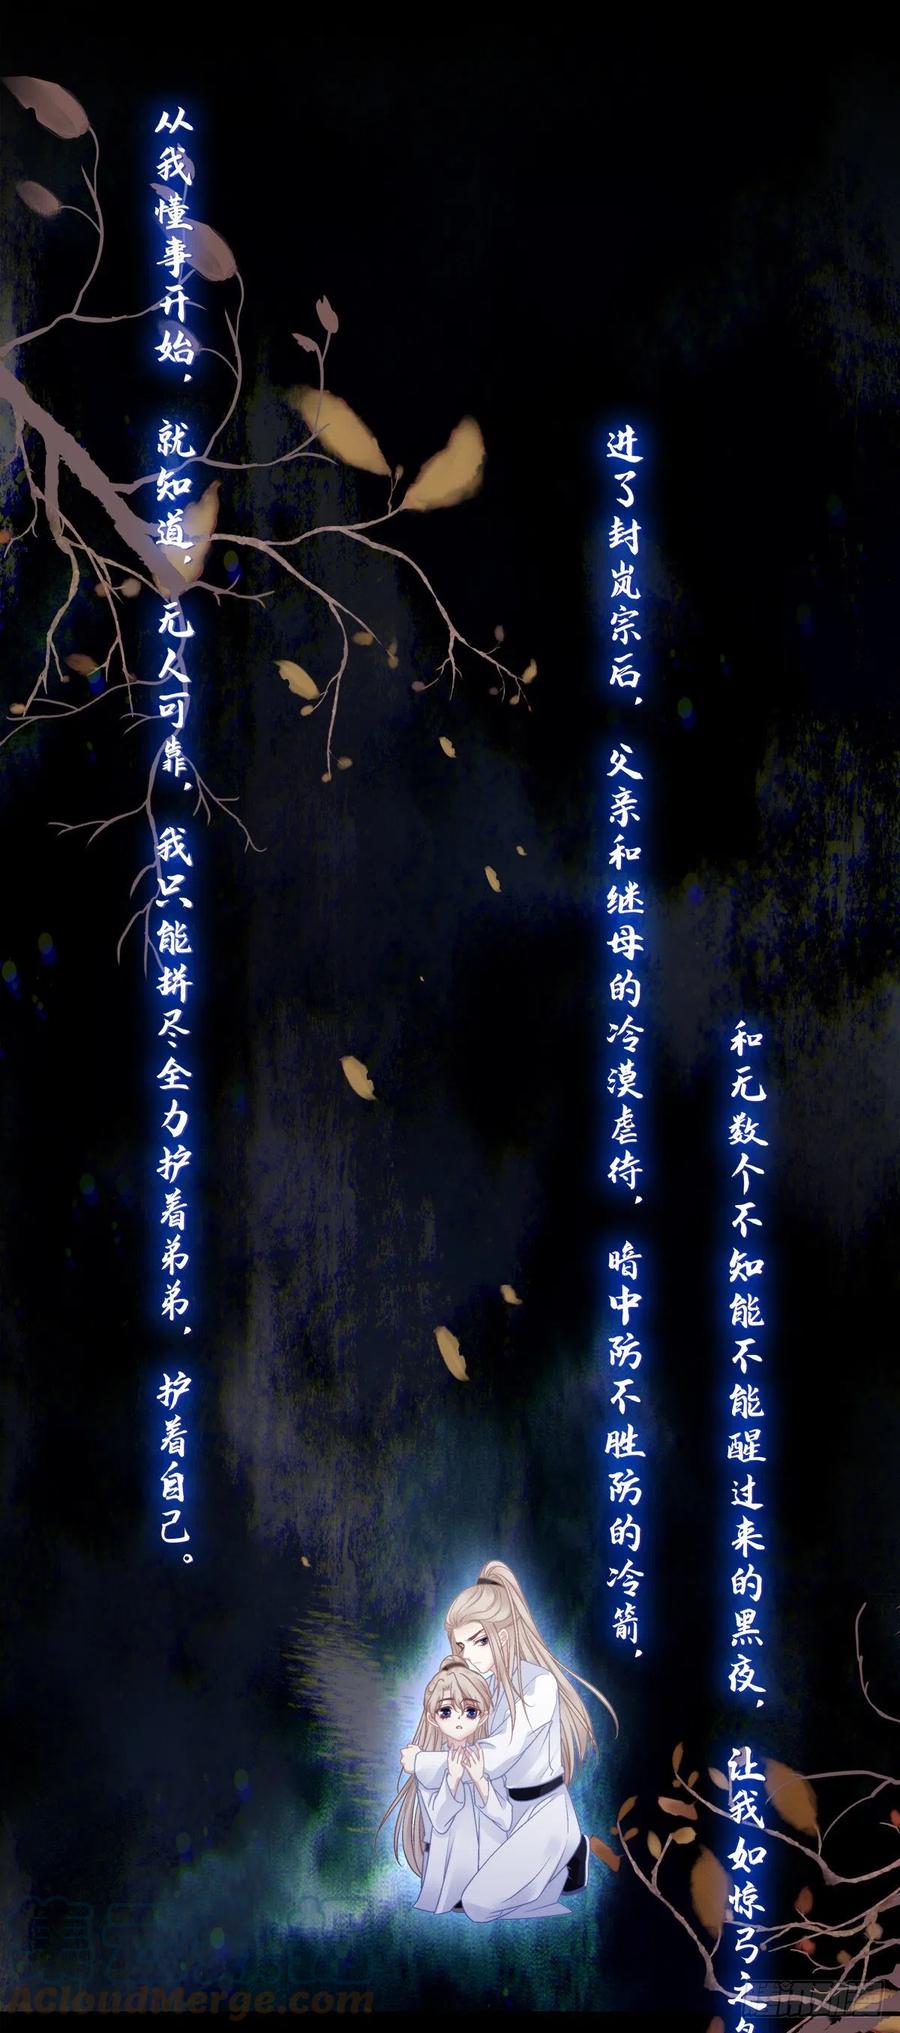 从我懂事开始，就知道，无人可靠，我只能拼尽全力护着弟弟，护着自己。
进了封岚宗后，父亲和继母的冷漠虐待，暗中防不胜防的冷箭，
和无数个不知能不能醒过来的黑夜，让我如惊弓之
ACloudMerge.com